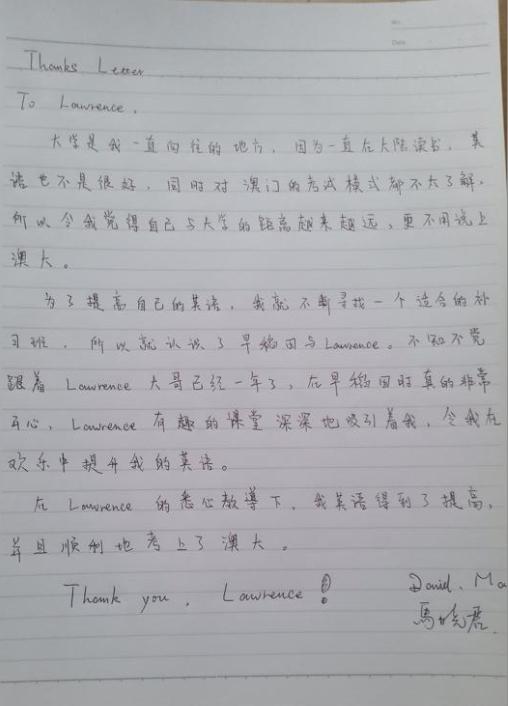 No:
Date:
Thanks Letter
To Lawrence,
大学是我一直向往的地方，因为一直在大陆读书，英
语也不是很好，同时对澳门的考试模式都不大了解，
所以令我觉得自己与大学的距离越来越远，更不用说上
澳大。
为了提高自己的英语，我就不断寻找一个适合的补
习班，所以就认识了早稻田与Lawrence。不知不觉
跟着 Lawrence 大哥已经一年了，在早稻田时真的非常
开心，Lawrence 有趣的课堂深深地吸引着我，令我在
欢乐中提升我的英语。
在 Lawrence 的悉心教导下，我英语得到了提高，
并且顺利地考上了澳大。
Thank you, Lawrence!
Daniel. Ma
馬曉君